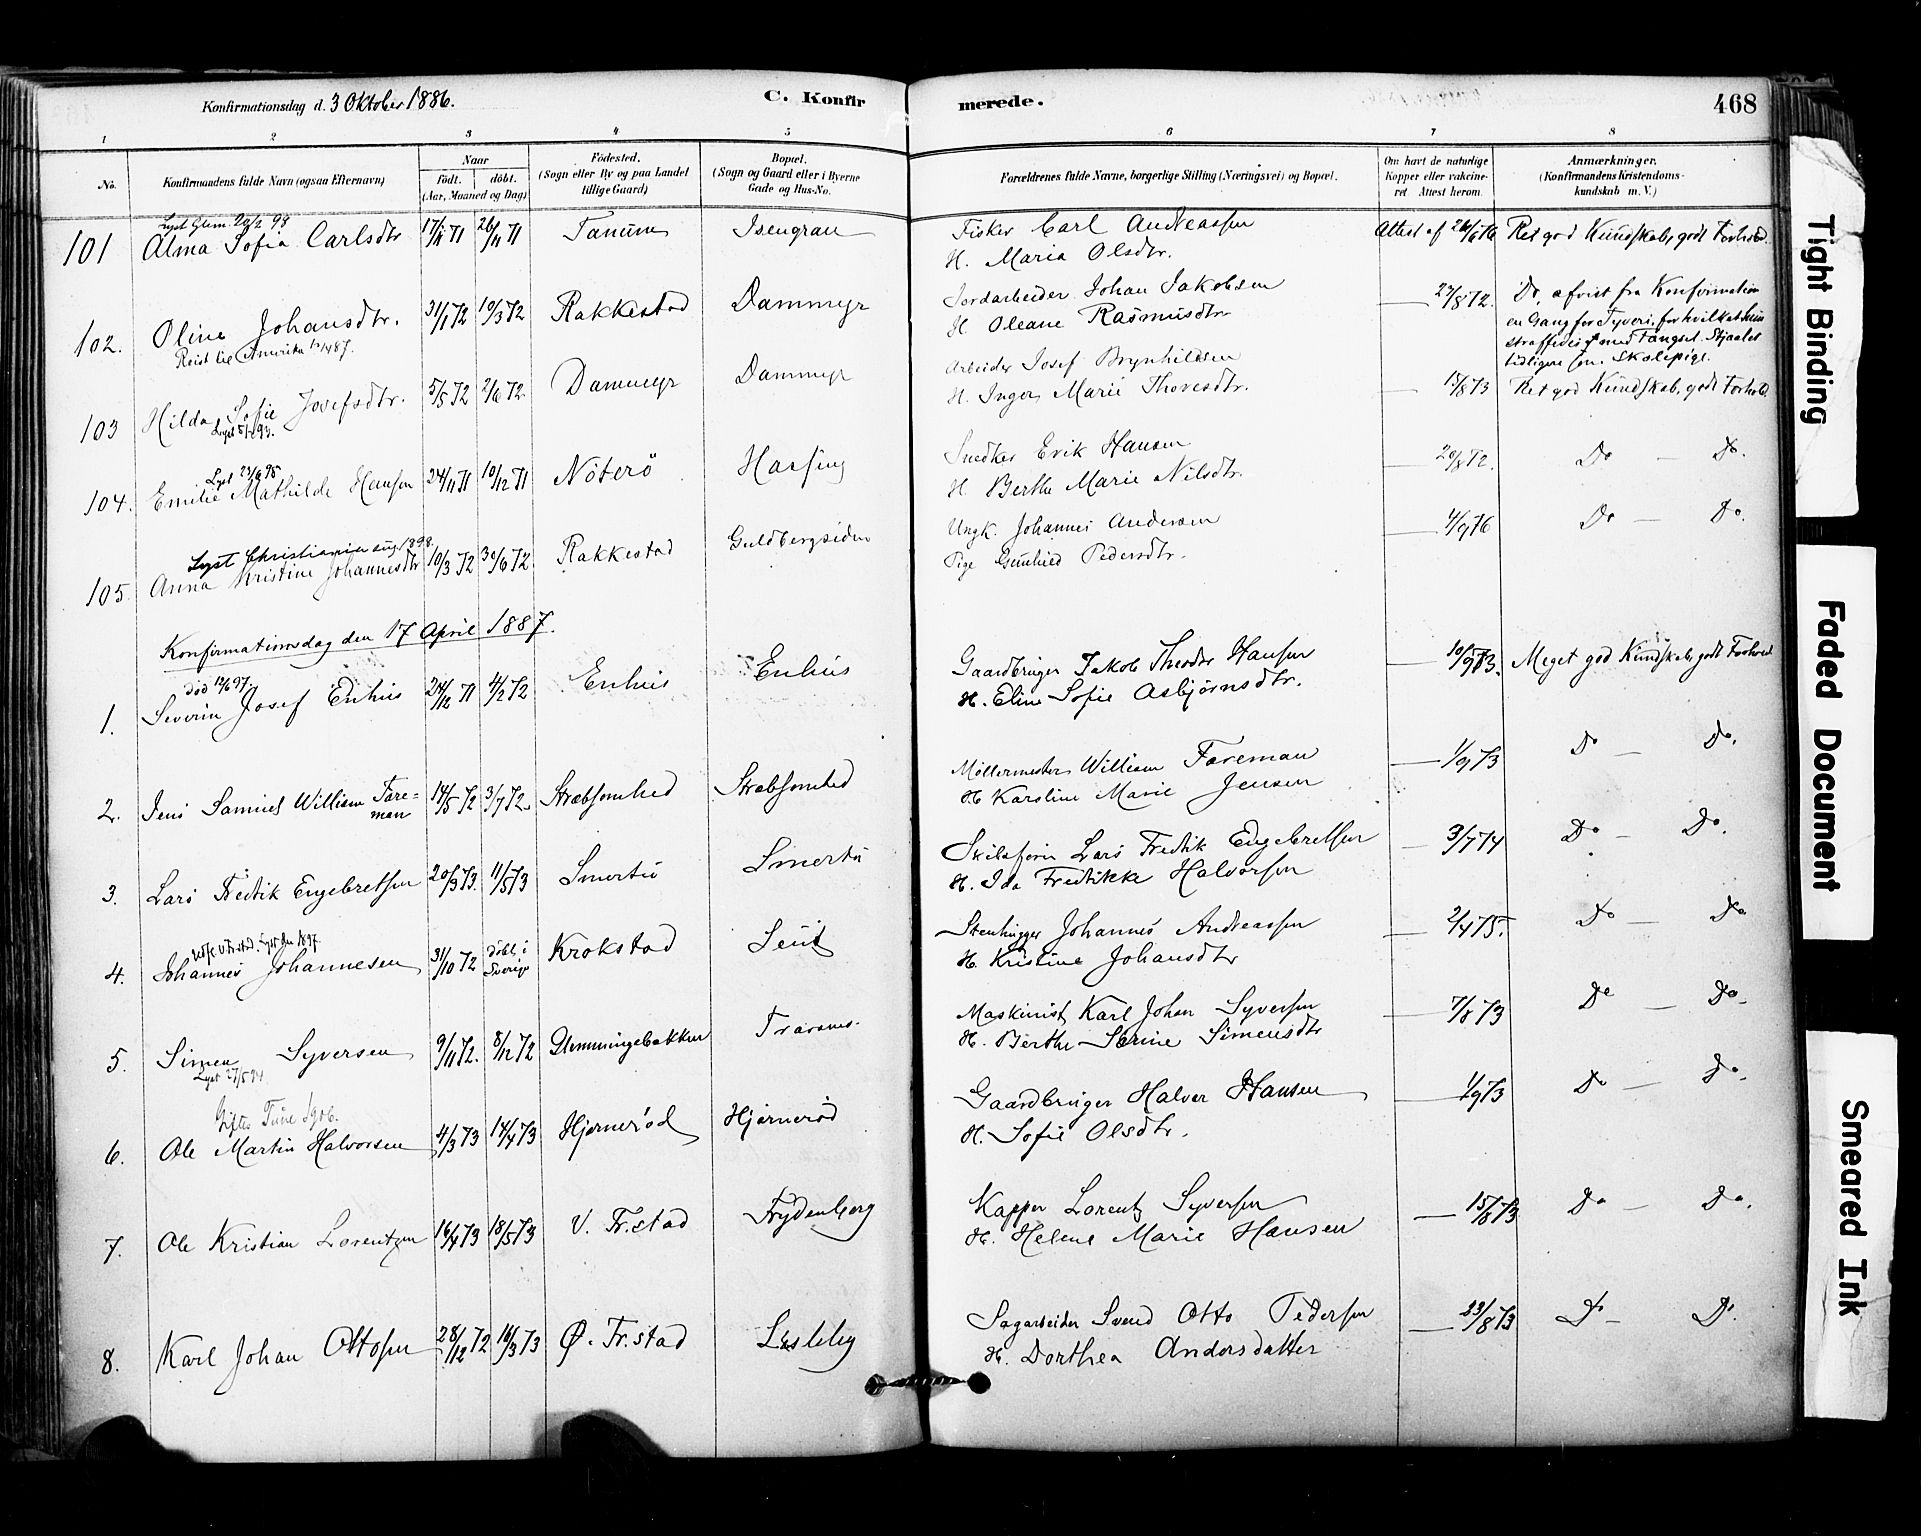 Konfirmationsdag d. 3 Oktober 1886. C. Konfirmerede. 468
1 2 3 4 5 6 7 8
No. Konfirmandens fulde Navn (ogsaa Efternavn) Naar Födt. döbt. (Aar, Maaned og Dag) Födested. (Sogn eller By og paa Landet tillige Gaard) Bopæl. (Sogn og Gaard eller i Byerne Gade og Hus-No. Forældrenes fulde Navne, borgerlige Stilling (Næringsvei) og Bopæl. Om havt de naturlige Kopper eller vakcineret. Attest herom. Anmærkninger. (Konfirmandens Kristendomskundskab m. V.)
101 Alma Sofia Carlsdtr 26/11 71 Tanum Isengran Fisker Carl Andreassen Attest af Ret god Kundskab, godt Forhold.
H. Maria Olsdtr.
102. Oline Johansdtr. 31/1 72 10/3 72 Rakkestad Dammyr Jordarbeider Johan Jakobsen 27/8 72. Do, afvist fra Konfirmation
Reist til Amerika H Oleane Rasmusdtr en Gang for Tyveri, for hvilket hun
straffedes med Fængsel. Stjaalet
tidligere som Skolepige.
103 Hilda Sofie Josefsdtr. 5/5 72 2/6 72 Dammyr Dammyr Arbeider Josef Brynhildsen 15/8 73 Ret god Kundskab, godt Forhold.
H. Inger Marie Thoresdtr.
Lyst 23/6 95
104. Emilie Mathilde Hansen 24/11 71 10/12 71 Nöterö Snedker Erik Hansen 20/8 72. Do — Do.
H. Berthe Marie Nilsdtr.
Lyst Christiania aug. 1898.
105. Anna Kristine Johannesdtr 10/3 72 30/6 72 Rakkestad Guldbergsiden Ungk. Johannes Andersen 4/9 76 Do — Do.
Pige Gunhild Pedersdtr.
Konfirmationsdag den 17 April 1887.
død
1. Severin Josef Enhus 24/12 71 4/2 72 Enhus Enhus Gaardbruger Jakob Theodor Hansen 10/9 73. Meget god Kundskab, godt Forhold
H. Eline Sofie Asbjørnsdtr.
2. Jens Samuel William Foreman 14/5 72 3/7 72. Stræbsomhed Stræbsomhed Møllermester William Foreman 1/9 73 Do — Do.
H Karoline Marie Jensen
3. Lars Fredrik Engebretsen 20/3 73. 11/5 73 Smertu Smertu Lars Fredrik Engebretsen 3/7 74 Do — Do.
H. Ida Fredrikke Halvorsen
4. Johannes Johannesen 31/10 72 döbt i Sverige Krokstad Seut Stenhugger Johannes Andreassen 2/4 75. Do — Do
H. Kristine Johansdtr
5. Simen Syversen 9/11 72. 8/12 72 Glemmingebakken Traranes. Maskinist Karl Johan Syversen 7/8 73 Do — Do
Lyst 27/5 94 H. Berthe Serine Simensdtr
Giftes Tune 1906.
6. Ole Martin Halvorsen 4/3 73 14/4 73 Hjørnerød Hjørnerød Gaardbruger Halvor Hansen 1/9 73 Do — Do.
H. Sofie Olsdtr.
7. Ole Kristian Lorentzen 16/4 73 18/5 73 V. Fr.stad Frydenberg Kapper Lorentz Syversen 15/8 73 Do — Do.
H. Helene Marie Hansen
8. Karl Johan Ottosen 28/12 72 16/3 73 Ø. Fr.stad Lisleby Sagarbeider Svend Otto Pedersen 23/8 73 Do — Do.
H. Dorthea Andersdatter
Tight Binding
Faded Document
Smeared Ink